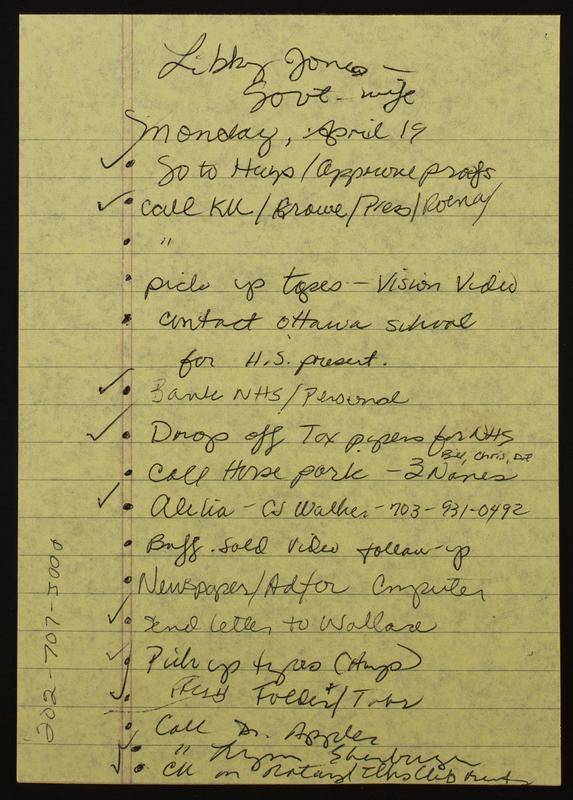 Libby Jones -
Govt - wife
Monday, April 19
Go to Hugs/Approve proofs
Call KU/Browe/Press/
"
pick up tapes - Vision Video
contact Ottawa school
for H.S. present.
Bank NHS/Personal
Drop off Tax papers for NHS
Call Horse park - 3 Names
Bill, Chris, D.E.
Alelia - CJ Walker - 703-931-0492
Buff. Sold Video follow-up
Newspaper/Ad for Computer
Send letter to Wallace
Pick up types (Hugs)
Folders/Tabs
Call Dr. Apples
" Lynn
CK on
202-707-5000